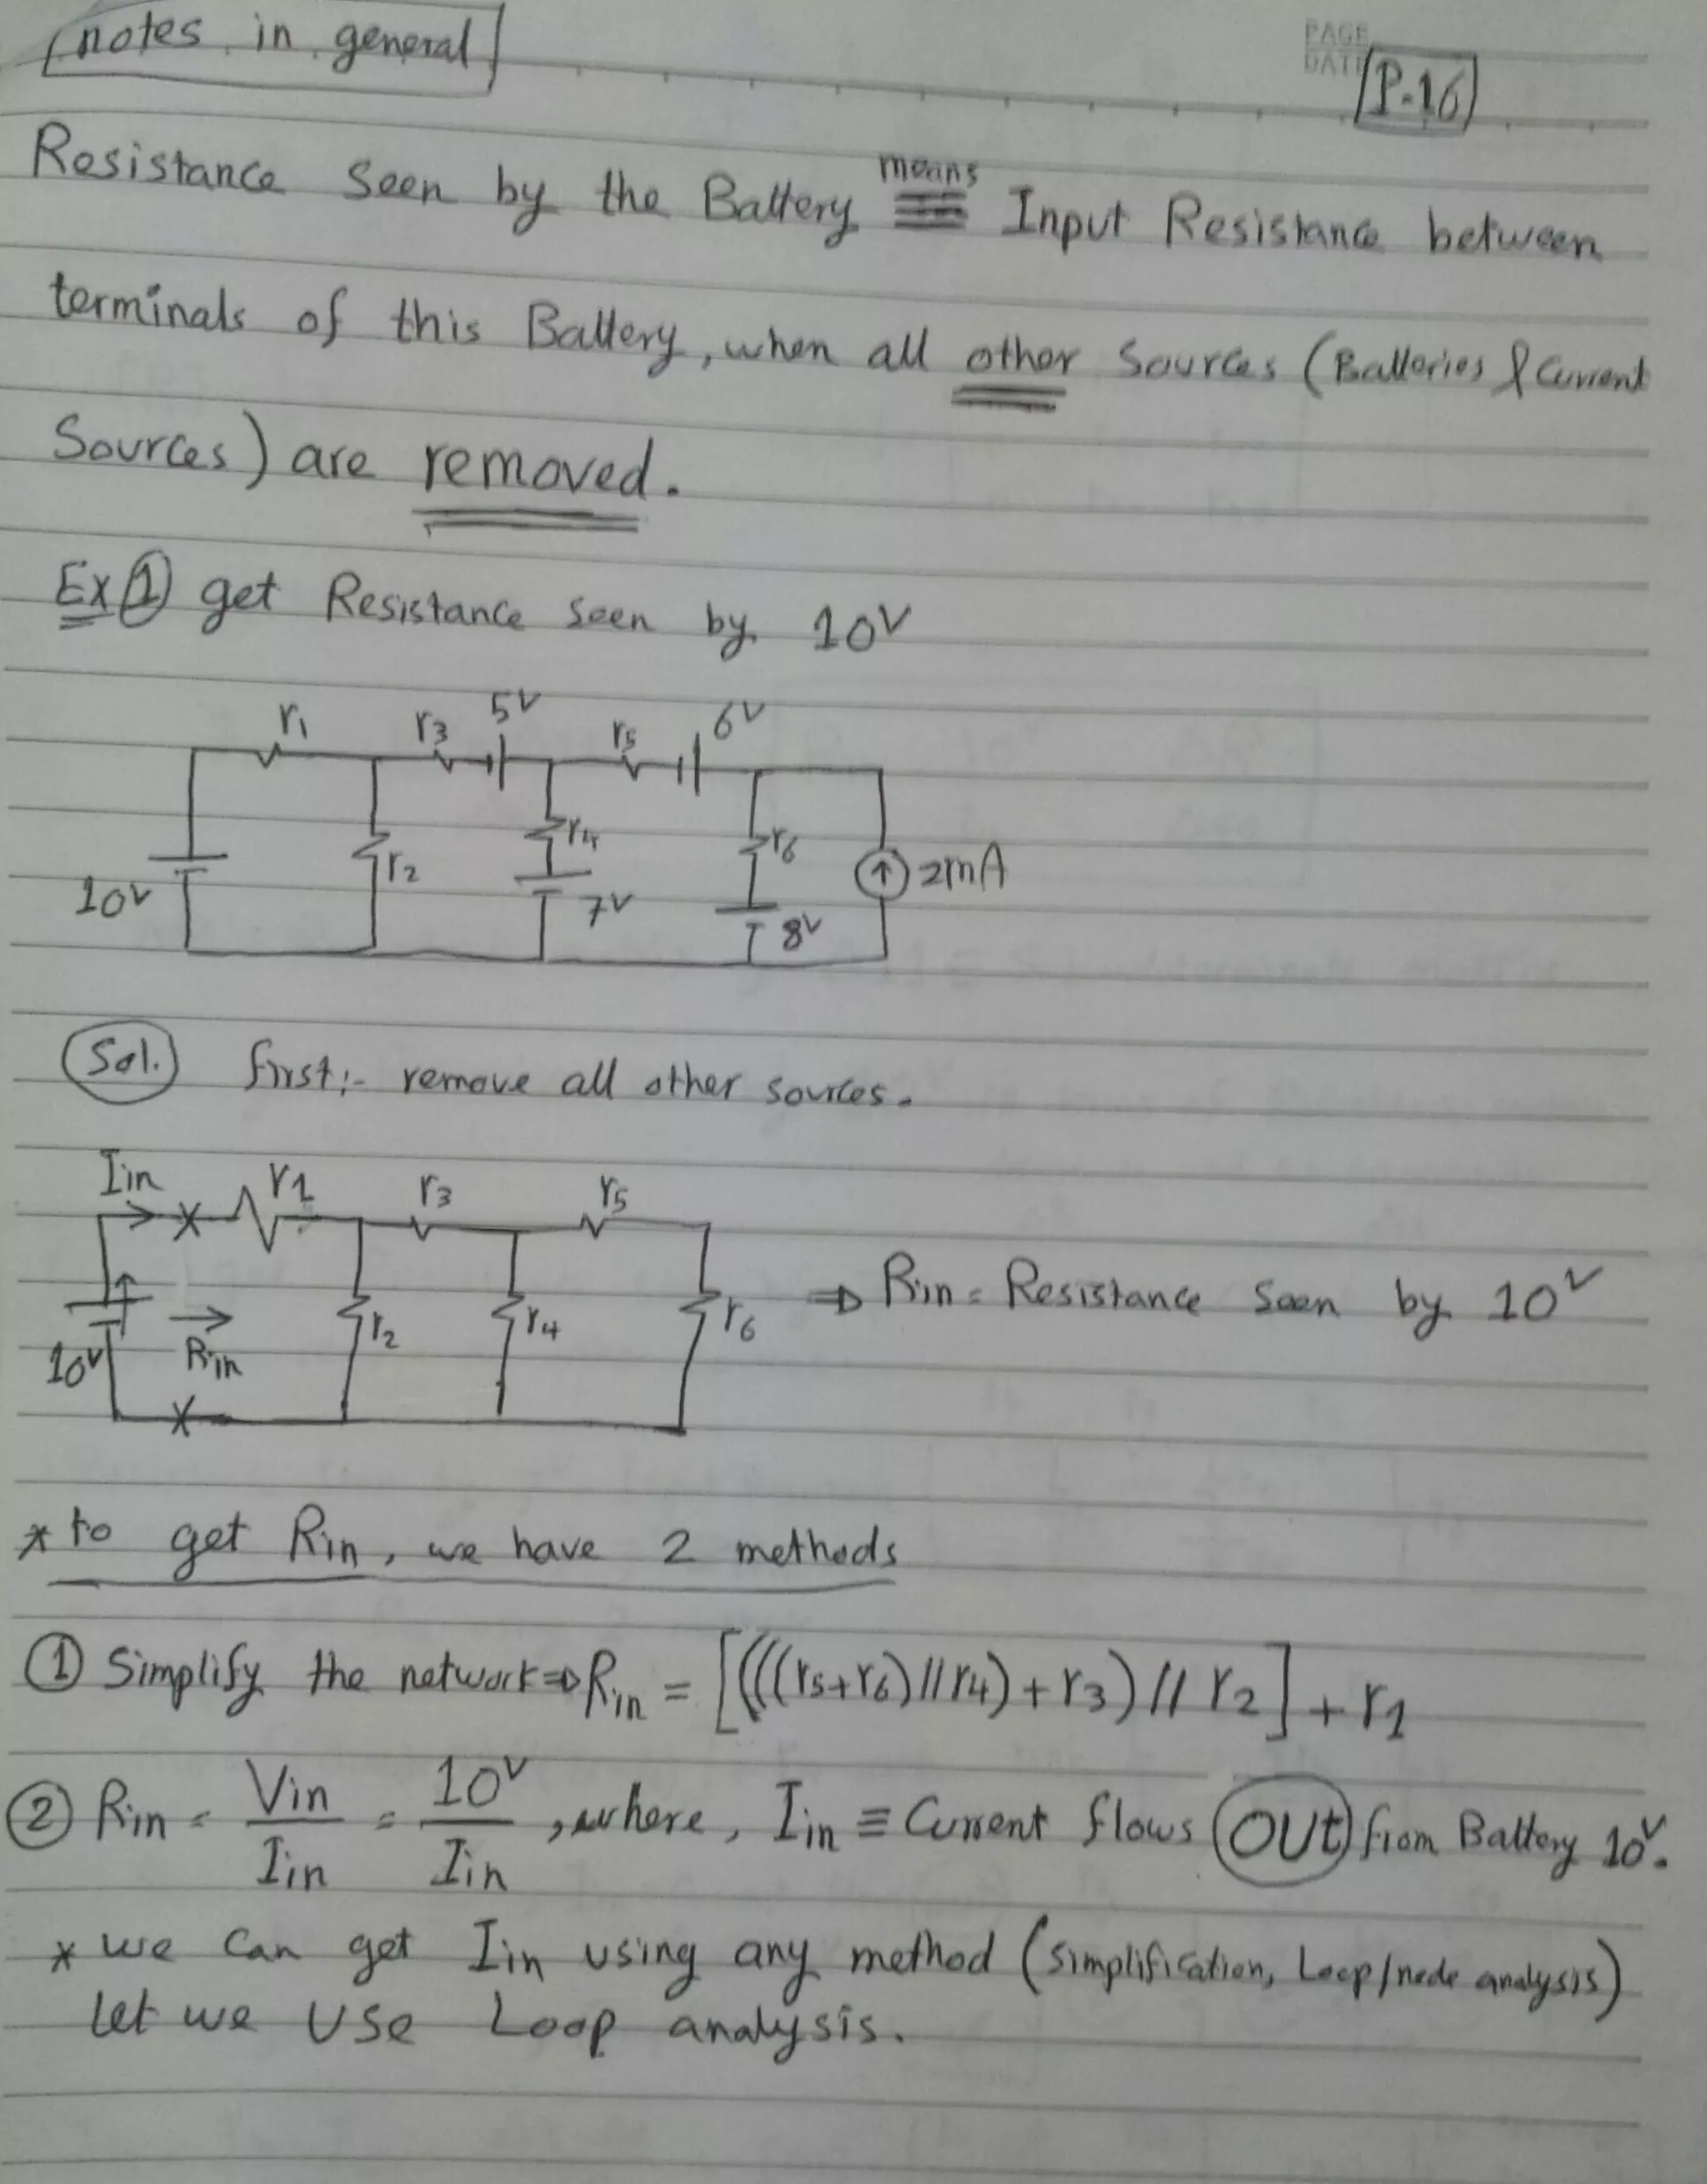 notes in general
PAGE
DATE
P.16
Resistance seen by the Battery means ≡ Input Resistance between
terminals of this Battery, when all other sources (Batteries & Current
Sources) are removed.
Ex ① get Resistance seen by 10V
r1 r3 5V r5 6V
10V r2 r4 7V r6 8V 2mA
Sol. first:- remove all other sources.
Iin r1 r3 r5
10V Rin r2 r4 r6 ⇒ Rin = Resistance seen by 10V
* to get Rin, we have 2 methods
① Simplify the network ⇒ Rin = [(((r5+r6)//r4)+r3)//r2]+r1
② Rin = Vin/Iin = 10V/Iin, where, Iin ≡ Current flows OUt from Battery 10V.
* we can get Iin using any method (simplification, Loop/node analysis)
let we use Loop analysis.